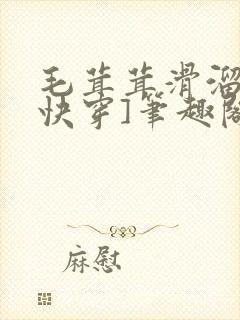 毛茸茸滑溜
快穿]笔趣阁
麻慰